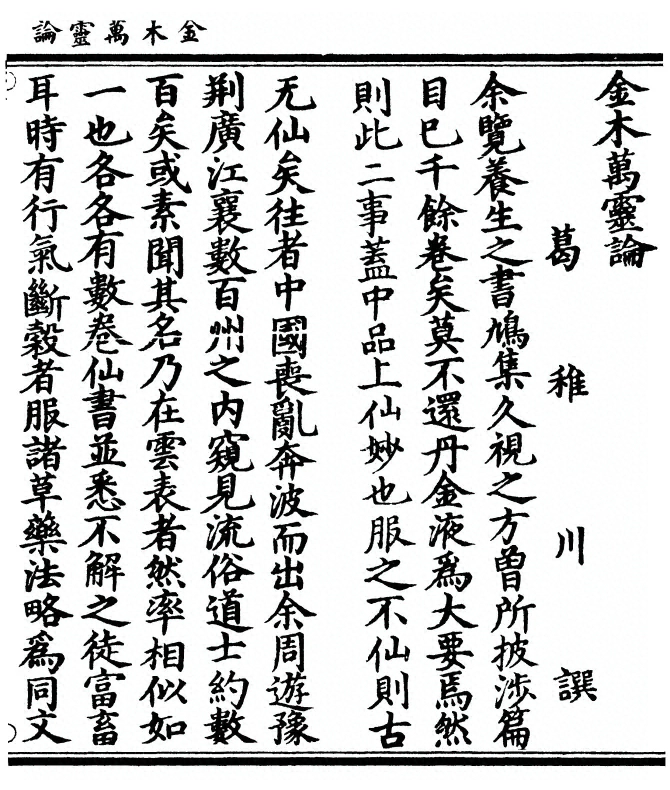 金木萬靈論
金木萬靈論
葛稚川譔
余覽養生之書鳩集久視之方曾所披涉篇
目巳千餘卷矣莫不還丹金液爲大要焉然
則此二事蓋中品上仙妙也服之不仙則古
无仙矣往者中國喪亂奔波而出余周遊豫
荆廣江襄數百州之内窺見流俗道士約數
百矣或素聞其名乃在雲表者然率相似如
一也各各有數卷仙書並悉不解之徒富畜
耳時有行氣斷糓者服諸草藥法略爲同文